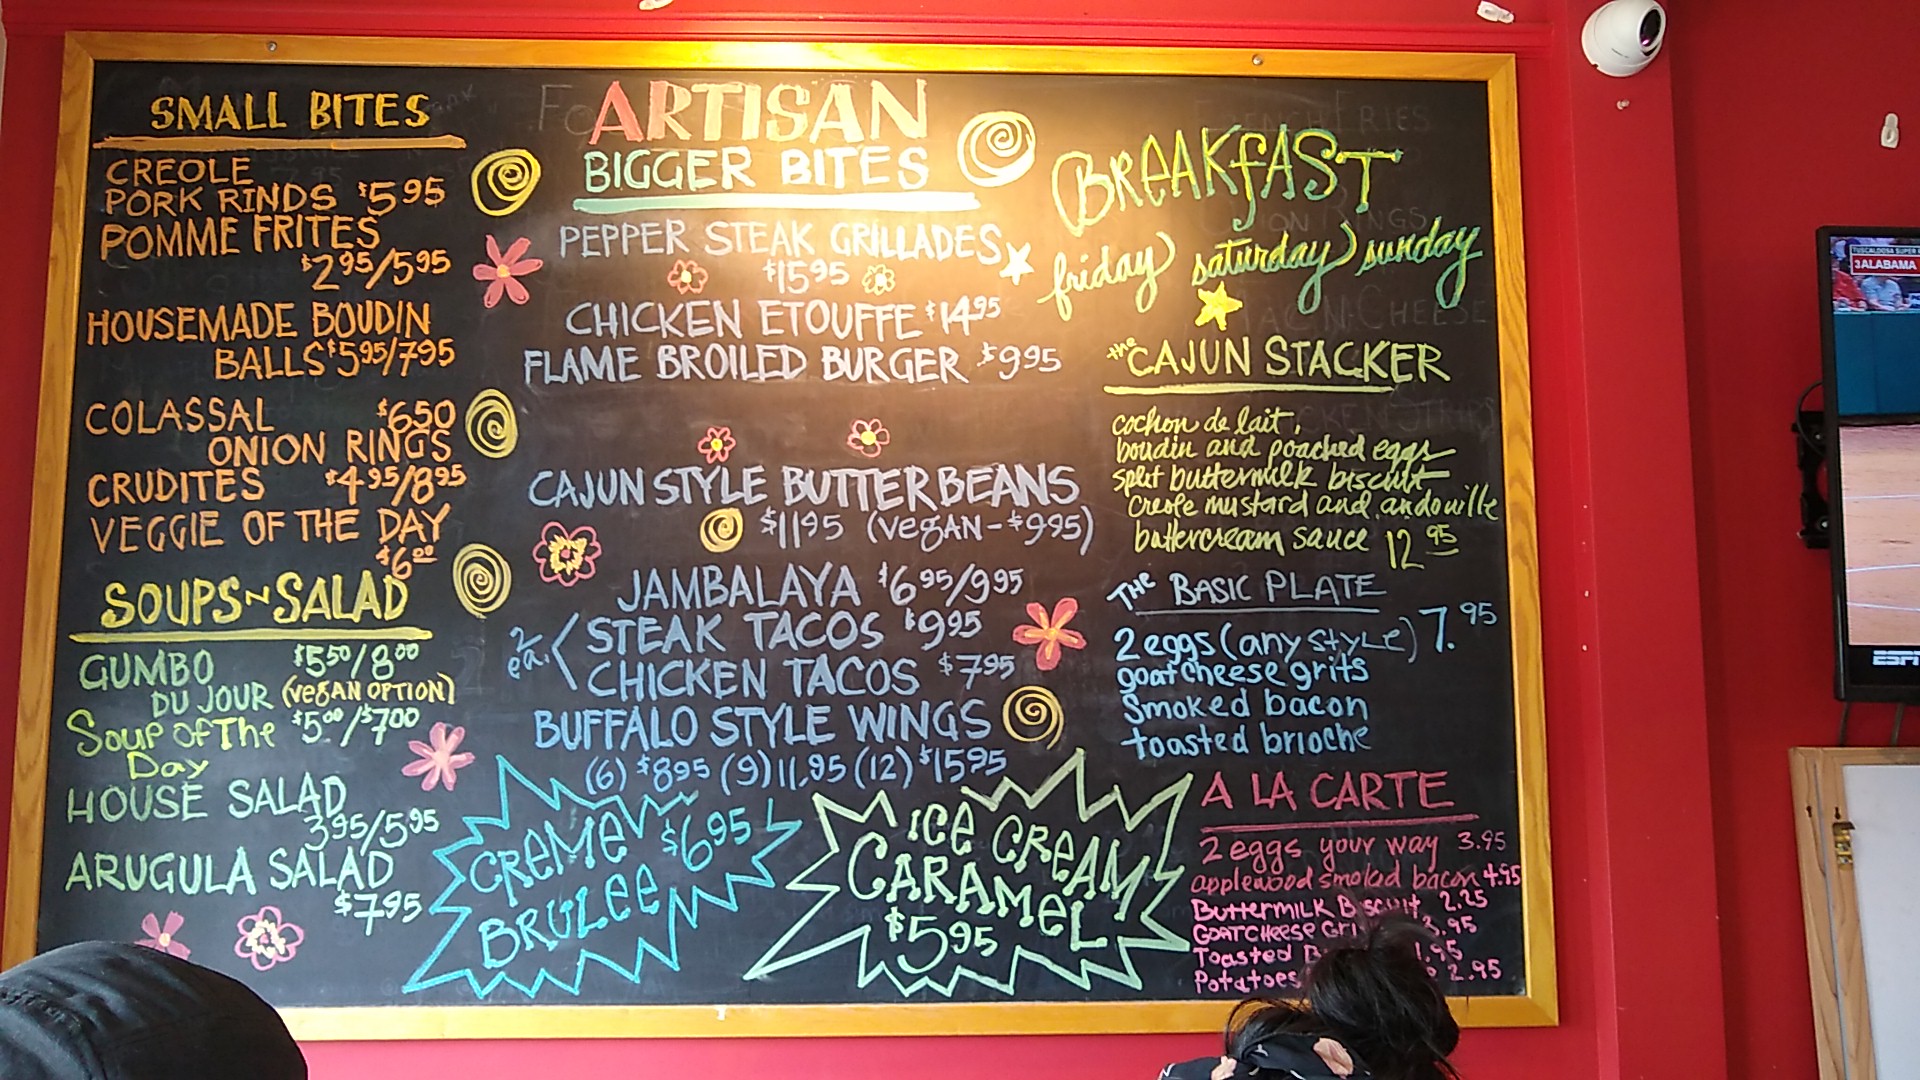 SMALL BITES
CREOLE
PORK RINDS $5.95
POMME FRITES
$2.95/5.95
HOUSEMADE BOUDIN
BALLS $5.95/7.95
COLASSAL $6.50
ONION RINGS
CRUDITES $4.95/8.95
VEGGIE OF THE DAY
$6.00
SOUPS~N~SALAD
GUMBO $5.50/8.00
DU JOUR (VEGAN OPTION)
Soup of The $5.00/$7.00
Day
HOUSE SALAD
3.95/5.95
ARUGULA SALAD
$7.95
ARTISAN
BIGGER BITES
PEPPER STEAK GRILLADES
$15.95
CHICKEN ETOUFFE $14.95
FLAME BROILED BURGER $9.95
CAJUN STYLE BUTTER BEANS
$11.95 (VEGAN - $9.95)
JAMBALAYA $6.95/9.95
2 ea. < STEAK TACOS $9.95
CHICKEN TACOS $7.95
BUFFALO STYLE WINGS
(6) $8.95 (9) 11.95 (12) $15.95
CREME $6.95
BRULEE
ICE CREAM
CARAMEL
$5.95
BREAKfAST
friday saturday sunday
the CAJUN STACKER
cochon de lait,
boudin and poached eggs
split buttermilk biscuit
creole mustard and andouille
buttercream sauce 12.95
THE BASIC PLATE
2 eggs (any STYLE) 7.95
goat cheese grits
Smoked bacon
toasted brioche
A LA CARTE
2 eggs your way 3.95
applewood smoked bacon 4.95
BUTTERMILK BISCUIT 2.25
GOATCHEESE GRI 3.95
Toasted B 1.95
Potatoes 2.95
TUSCALOOSA SUPER
3 ALABAMA
ESPN